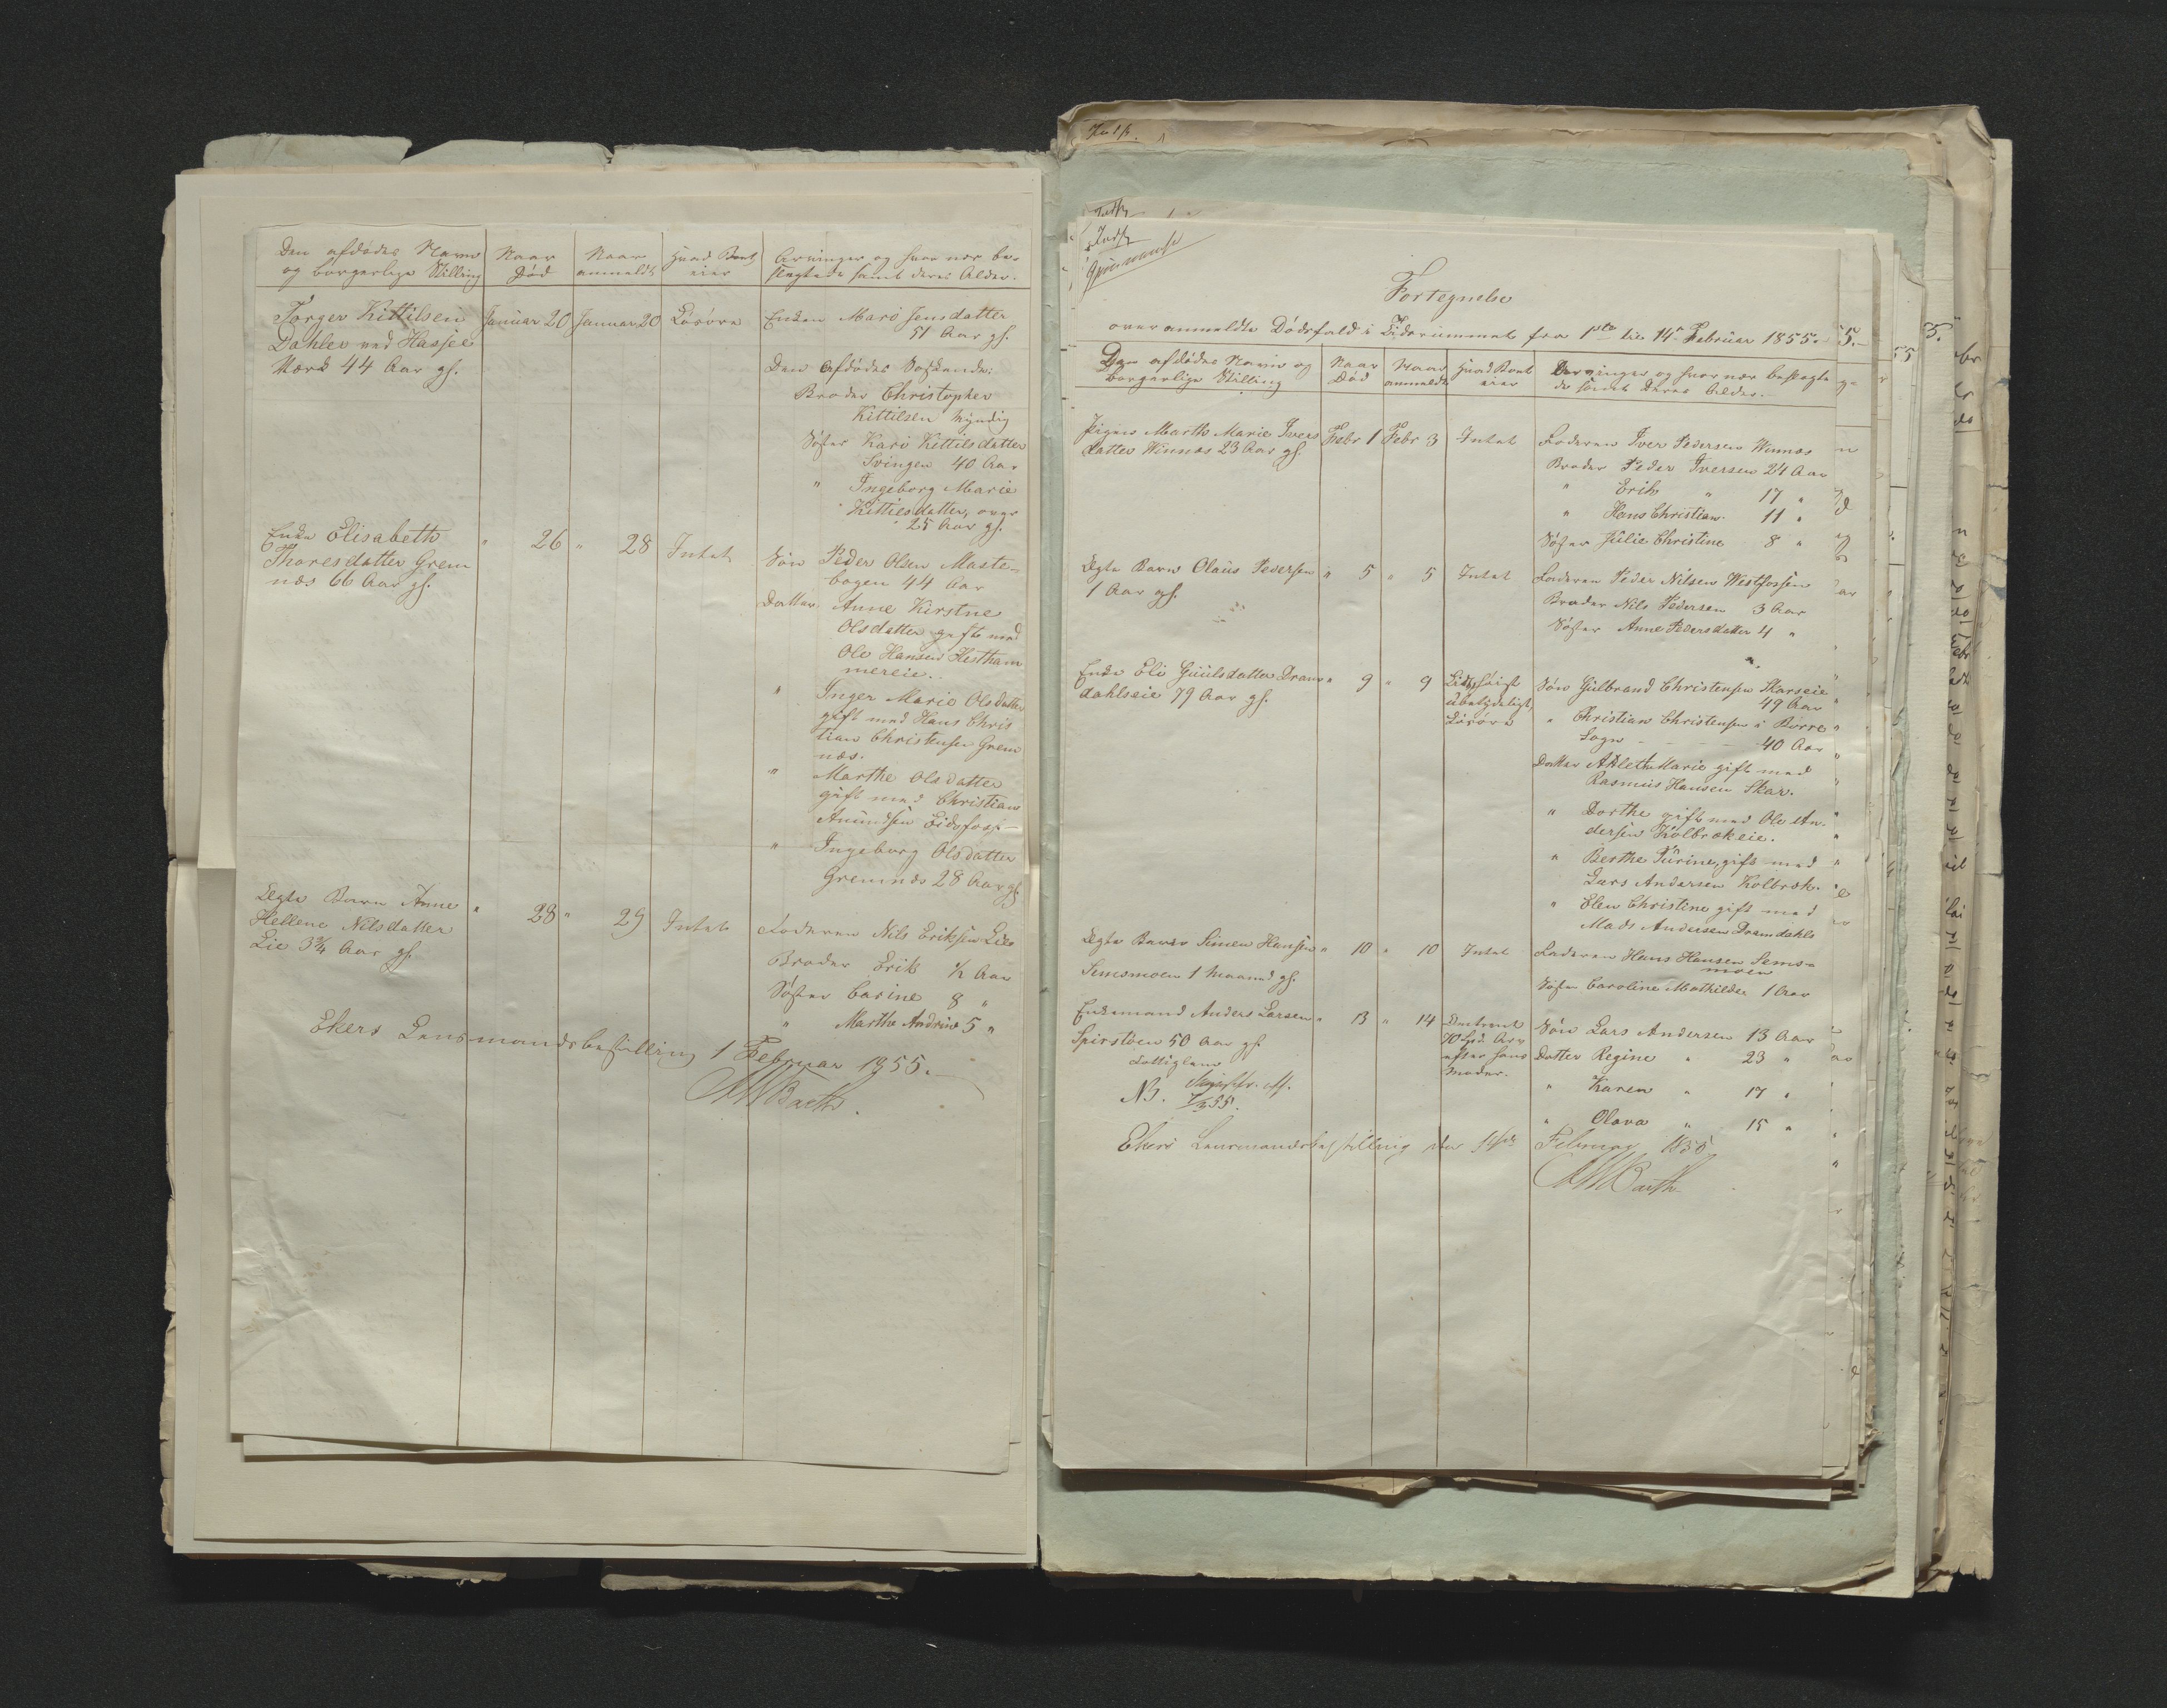 Den afdødes Navn
og borgerlige Stilling
Naar
Død
Naar
anmeldt
Hvad Boet
eier
Arvinger og hvor nær be-
slegtede samt deres Alder.
Torger Kittilsen
Dahler ved Hassel
Værk 44 Aar gl.
Januar 20
Januar 20
Løsøre
Enken Mari Jensdatter
51 Aar gl.
Den Afdødes Søskende:
Broder Christopher
Kittilsen Myndig
Søster Kari Kittilsdatter
Svingen 40 Aar
" Ingeborg Marie
Kittilsdatter, over
25 Aar gl.
Enke Elisabeth
Thoresdatter Grem
næs 66 Aar gl.
" 26
" 28
Intet
Søn Peder Olsen Maste-
bogen 44 Aar
Datter Anne Kirstne
Olsdatter gift med
Ole Hansen Hestham
mereie.
" Inger Marie Olsdatter
gift med Hans Chris
tian Christensen Grem
næs.
" Marthe Olsdatter
gift med Christian
Amundsen Eidsfoss
" Ingeborg Olsdatter
Gremnæs 28 Aar gl.
Ægte Barn Anne
Hellene Nilsdatter
Lie 3 3/4 Aar gl.
" 28
" 29
Intet
Faderen Nils Eriksen Lie
Broder Erik 1/2 Aar
Søster Carine 8 "
" Marthe Andrine 5 "
Ekers Lensmandsbestilling 1 Februar 1855.
Barth.
Fortegnelse
over anmeldte Dødsfald i Tidsrummet fra 1ste til 14de Februar 1855.
Den afdødes Navn og
borgerlige Stilling
Naar
Død
Naar
anmeldt
Hvad Boet
eier
Arvinger og hvor nær beslegte
de samt deres Alder.
Pigen Marth Marie Ivers
datter Winnæs 23 Aar gl.
Febr 1
Febr 3
Intet
Faderen Iver Pedersen Winnæs
Broder Peder Iversen 24 Aar
" Erik " 17 "
" Hans Christian 11 "
Søster Julie Christine 8 "
Ægte Barn Olaus Pedersen
1 Aar gl.
" 5
" 5
Intet
Faderen Peder Nilsen Westfossen
Broder Nils Pedersen 3 Aar
Søster Anne Pedersdatter 4 "
Enke Eli Guulsdatter Dram
dahlseie 79 Aar gl.
" 9
" 9
ubetydeligt
Løsøre
Søn Gulbrand Christensen Skarseie
49 Aar
" Christian Christensen i Borre
Sogn 40 Aar
Datter Athlet Marie gift med
Rasmus Hansen Skar.
" Dorthe gift med Ole An-
dersen Kolbrekeie.
" Berthe Turine, gift med
Lars Andersen Kolbræk.
" Elen Christine gift med
Mads Andersen Dramdahls
Ægte Barn Simen Hansen
Semsmoen 1 Maaned gl.
" 10
" 10
Intet
Faderen Hans Hansen Sems-
moen
Søster Caroline Mathilde 1 Aar
Enkemand Anders Larsen
Spirstøen 50 Aar gl.
" 13
" 14
Omtrent
70 Spd. Arv
efter hans
Moder.
Søn Lars Andersen 13 Aar
Datter Regine " 23 "
" Karen " 17 "
" Olava " 15 "
NB.
Ekers Lensmandsbestilling den 14de Februar 1855
Barth